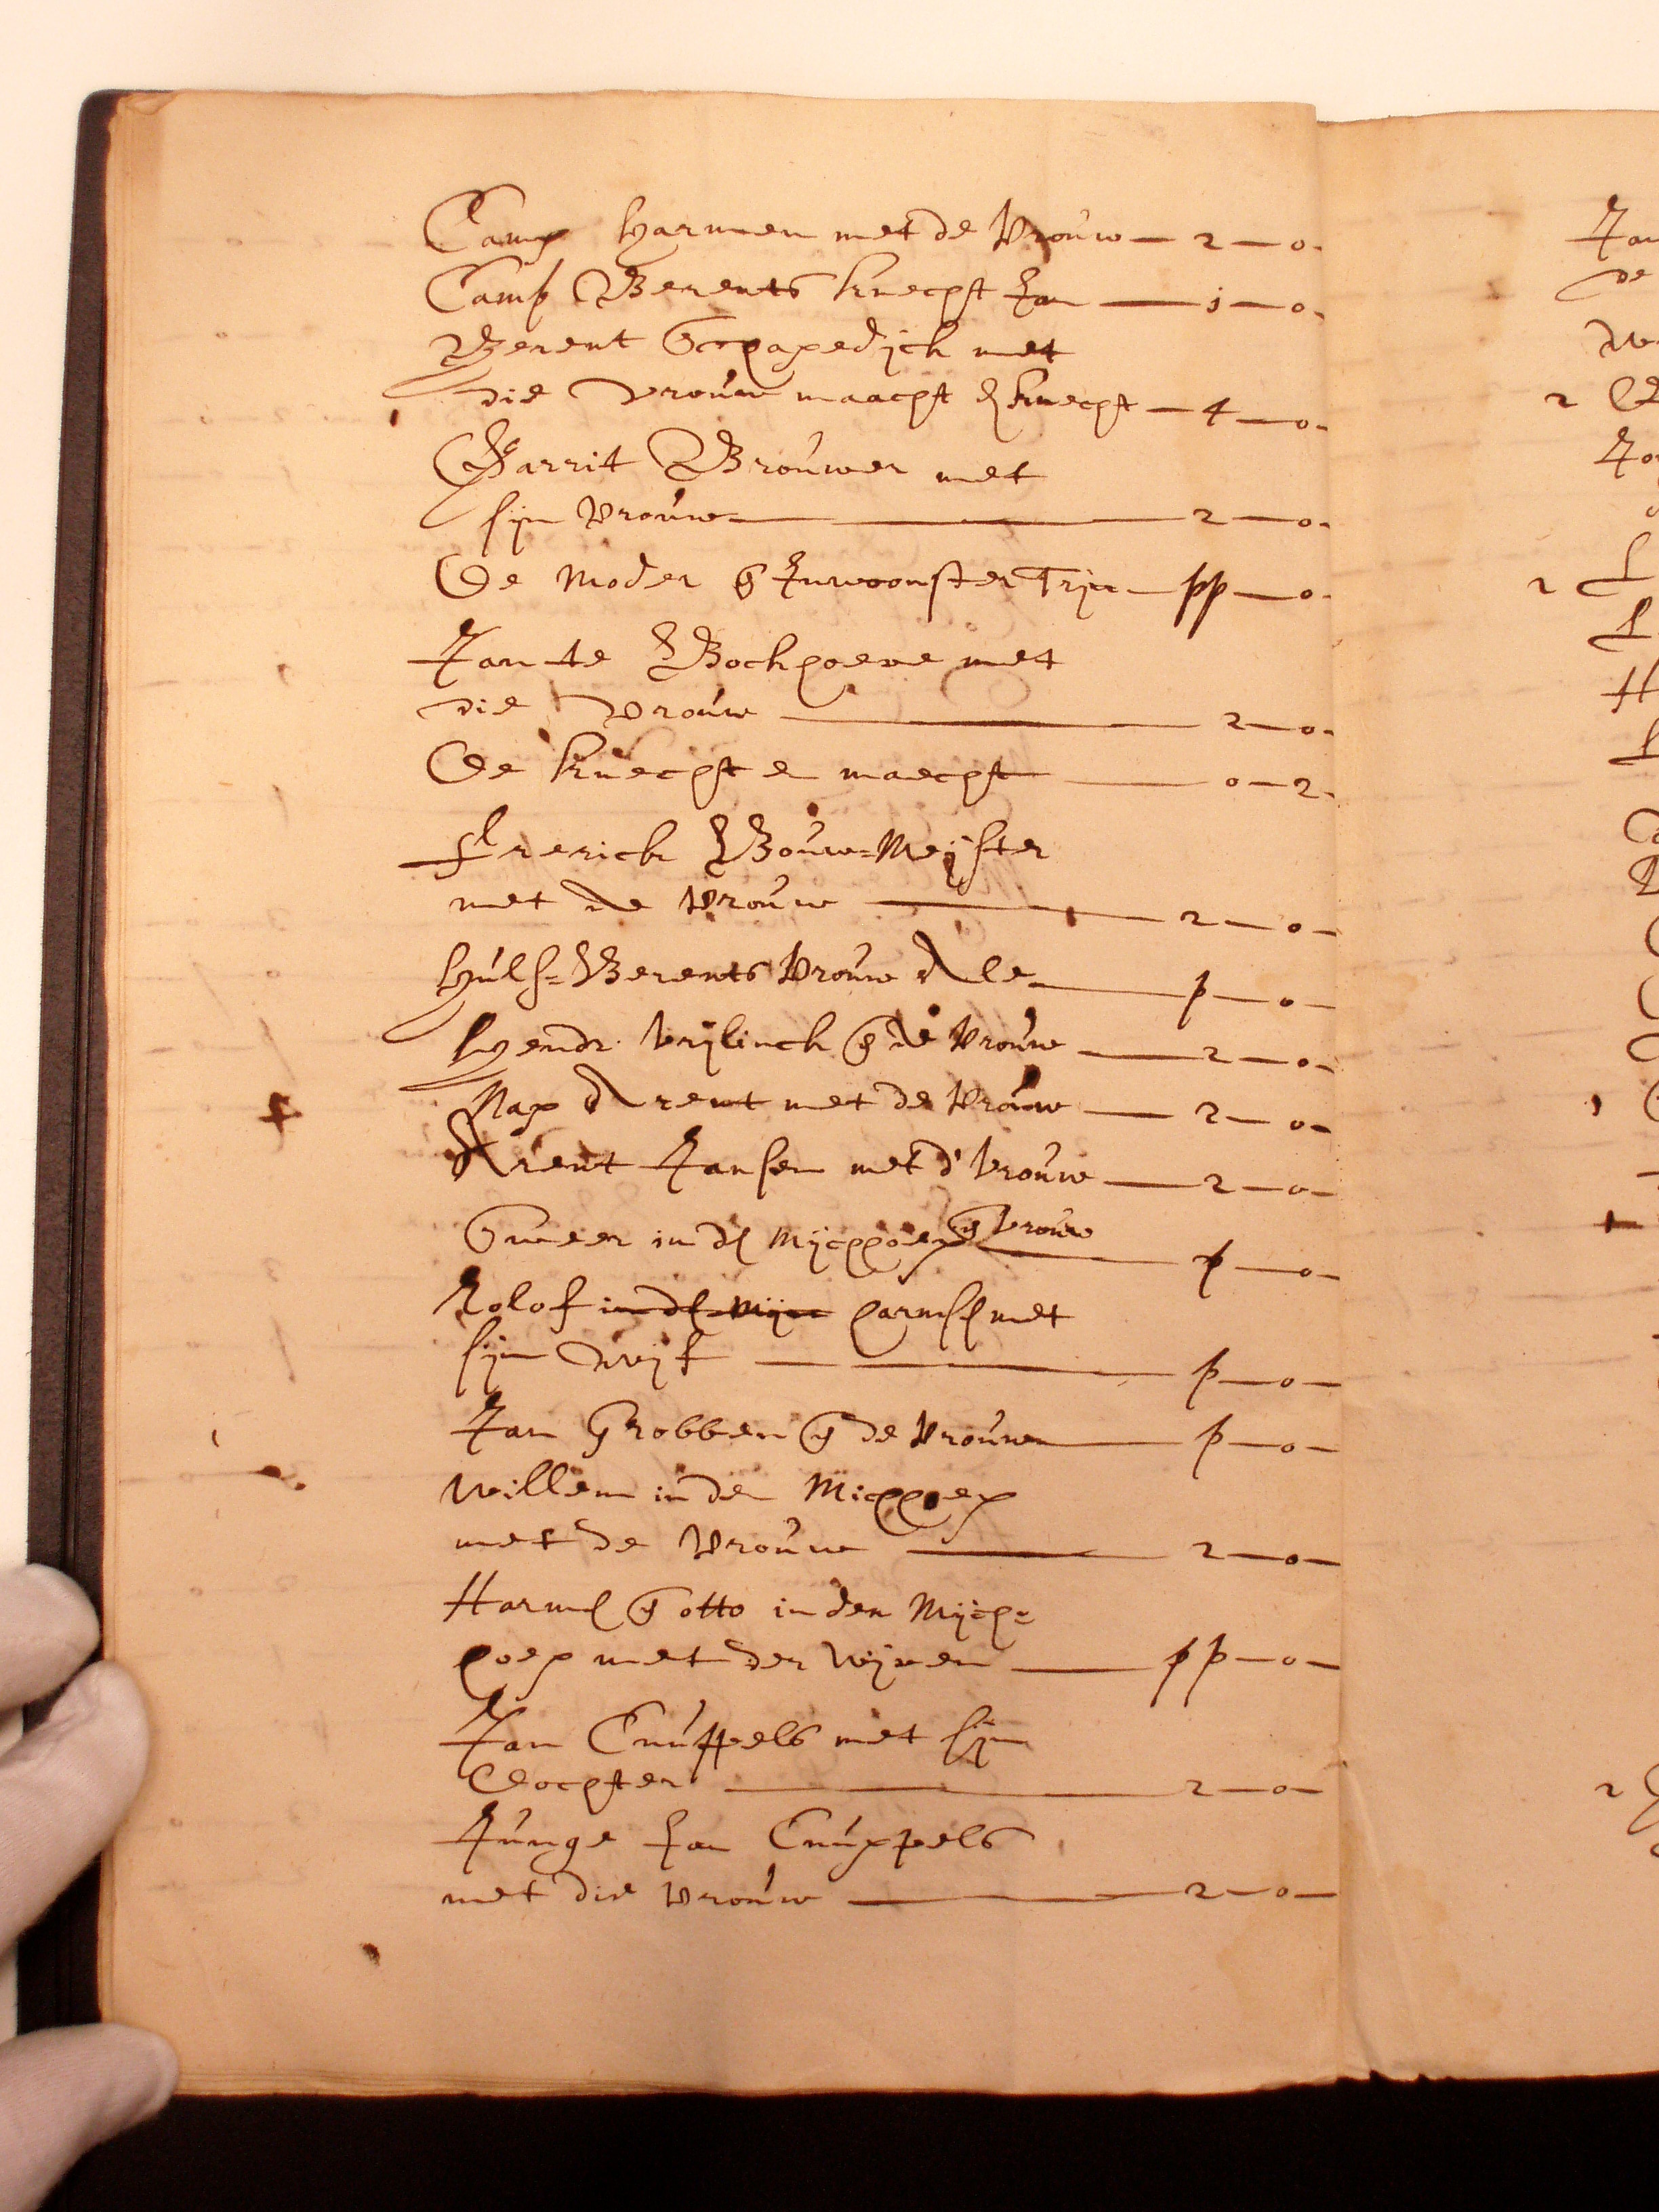 Camp Harmen met de Vrouw — 2 — 0
Camp Berents knecht Jan — 1 — 0
Berent Schapedijck met
die vrouw maacht en knecht — 4 — 0
Garrit Brouwer met
sijn vrouw — 2 — 0
De Moder & Inwoonster Trijn — pp — 0
Jan te Bockhoeve met
die Vrouw — 2 — 0
De knecht en maecht — 0 — 2
Frerick Bouw=Meijster
met de vrouw — 2 — 0
Huls=Berents Vrouw Ale — p — 0
Hendr. Vrijlinck & de Vrouw — 2 — 0
Nap Arent met de Vrouw — 2 — 0
Arent Jansen met d' Vrouw — 2 — 0
in den Mijchhoep & vrouw — p — 0
Rolof in den Mijc Harmsen met
sijn wijf — p — 0
Jan Grobben & de Vrouw — p — 0
Willem in den Michhoep
met de Vrouw — 2 — 0
Harmen & otto in den Mijch=
hoep met der wijven — pp — 0
Jan Cnuppels met sijn
Dochter — 2 — 0
Junge Jan Cnuppels
met die vrouw — 2 — 0